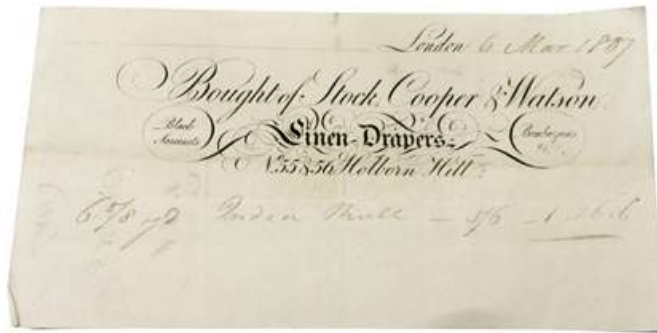 London 6 Mar 1807
Bought of Stock, Cooper & Watson
Black
Linen-Drapers
Bombazeens
&c.
No. 55 & 56 Holborn Hill
6 5/8 yd India Mull — 5/6 — 1.16.6